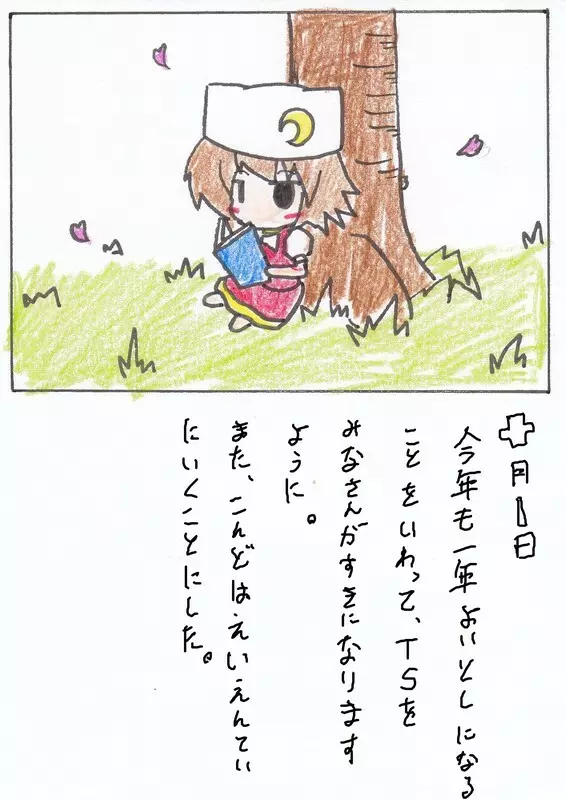 十月1日
今年も一年よいとしになる
ことをいわって、TSを
みなさんがすきになります
ように。
また、こんどはえいえんてい
にいくことにした。